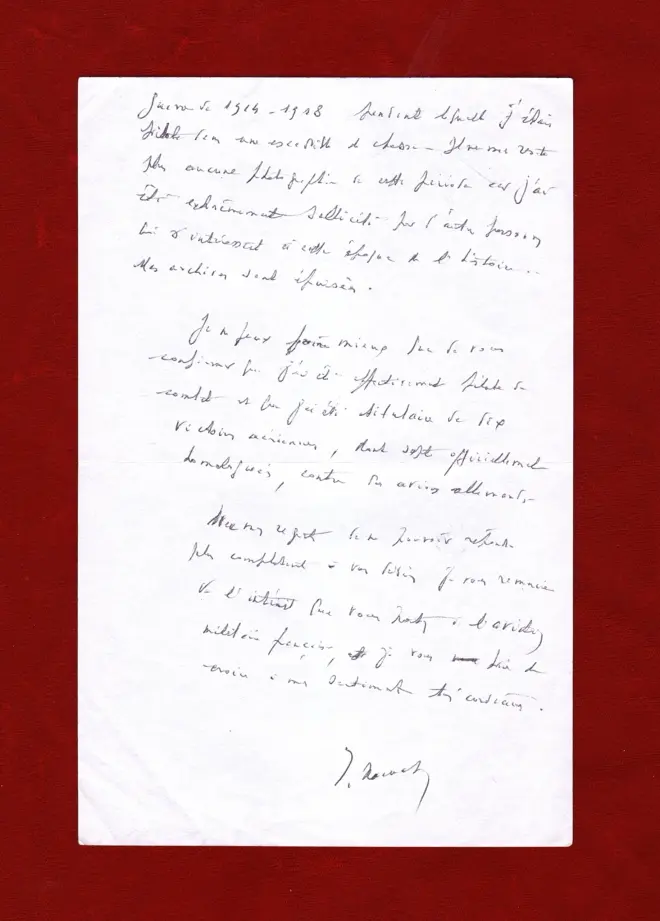 guerre de 1914-1918 pendant laquelle j'étais
pilote dans une escadrille de chasse. Il ne me reste
plus aucune photographie de cette période car j'ai
été extrêmement sollicité par d'autres personnes
qui s'intéressent à cette époque de l'histoire..
Mes archives sont épuisées.
Je ne peux faire mieux que de vous
confirmer que j'ai été effectivement pilote de
combat et que j'ai été titulaire de dix
victoires aériennes, dont sept officiellement
homologuées, contre des avions allemands.
Avec mes regrets de ne pouvoir répondre
plus complètement à vos désirs je vous remercie
de l'intérêt que vous portez à l'aviation
militaire française, et je vous prie de
croire à mes sentiments très cordiaux.